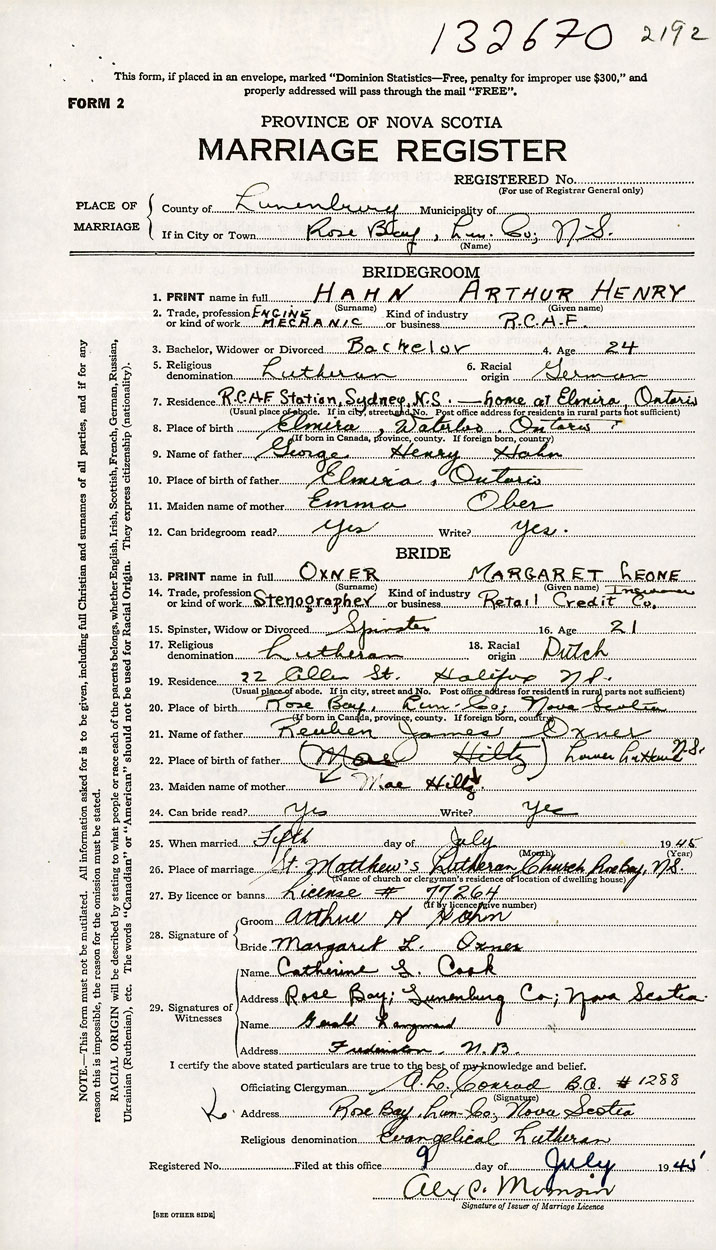 132670 2192
This form, if placed in an envelope, marked "Dominion Statistics—Free, penalty for improper use $300," and
properly addressed will pass through the mail "FREE".
FORM 2
PROVINCE OF NOVA SCOTIA
MARRIAGE REGISTER
REGISTERED No.
(For use of Registrar General only)
PLACE OF MARRIAGE
County of Lunenburg Municipality of
If in City or Town Rose Bay, Lun. Co; N.S.
(Name)
BRIDEGROOM
1. PRINT name in full HAHN ARTHUR HENRY
(Surname) (Given name)
2. Trade, profession or kind of work ENGINE MECHANIC Kind of industry or business R.C.A.F.
3. Bachelor, Widower or Divorced Bachelor 4. Age 24
5. Religious denomination Lutheran 6. Racial origin German
7. Residence R.C.A.F Station, Sydney, N.S. — home at Elmira, Ontario
(Usual place of abode. If in city, street and No. Post office address for residents in rural parts not sufficient)
8. Place of birth Elmira, Waterloo, Ontario
(If born in Canada, province, county. If foreign born, country)
9. Name of father George Henry Hahn
10. Place of birth of father Elmira, Ontario
11. Maiden name of mother Emma Ober
12. Can bridegroom read? Yes Write? Yes.
BRIDE
13. PRINT name in full OXNER MARGARET LEONE
(Surname) (Given name)
14. Trade, profession or kind of work Stenographer Kind of industry or business Retail Credit Co. Insurance
15. Spinster, Widow or Divorced Spinster 16. Age 21
17. Religious denomination Lutheran 18. Racial origin Dutch
19. Residence 22 Allen St. Halifax N.S.
(Usual place of abode. If in city, street and No. Post office address for residents in rural parts not sufficient)
20. Place of birth Rose Bay, Lun. Co; Nova Scotia
(If born in Canada, province, county. If foreign born, country)
21. Name of father Reuben James Oxner
22. Place of birth of father (Mae Hiltz) Lower LaHave N.S.
23. Maiden name of mother Mae Hiltz
24. Can bride read? Yes Write? Yes
25. When married Fifth day of July 1945
(Month) (Year)
26. Place of marriage St. Matthew's Lutheran Church Rose Bay, N.S.
(Name of church or clergyman's residence or location of dwelling house)
27. By licence or banns License # 77264
(If by licence give number)
28. Signature of
Groom Arthur H Hahn
Bride Margaret L. Oxner
29. Signatures of Witnesses
Name Catherine L. Cook
Address Rose Bay; Lunenburg Co; Nova Scotia
Name Gerald
Address Fredericton, N.B.
I certify the above stated particulars are true to the best of my knowledge and belief.
Officiating Clergyman A. L. Conrad B.A. #1288
(Signature)
Address Rose Bay, Lun. Co, Nova Scotia
Religious denomination Evangelical Lutheran
Registered No. Filed at this office 9 day of July 1945
Alex C.
Signature of Issuer of Marriage Licence
[SEE OTHER SIDE]
NOTE.—This form must not be mutilated. All information asked for is to be given, including full Christian and surnames of all parties, and if for any
reason this is impossible, the reason for the omission must be stated.
RACIAL ORIGIN will be described by stating to what people or race each of the parents belongs, whether English, Irish, Scottish, French, German, Russian,
Ukrainian (Ruthenian), etc. The words "Canadian" or "American" should not be used for Racial Origin. They express citizenship (nationality).